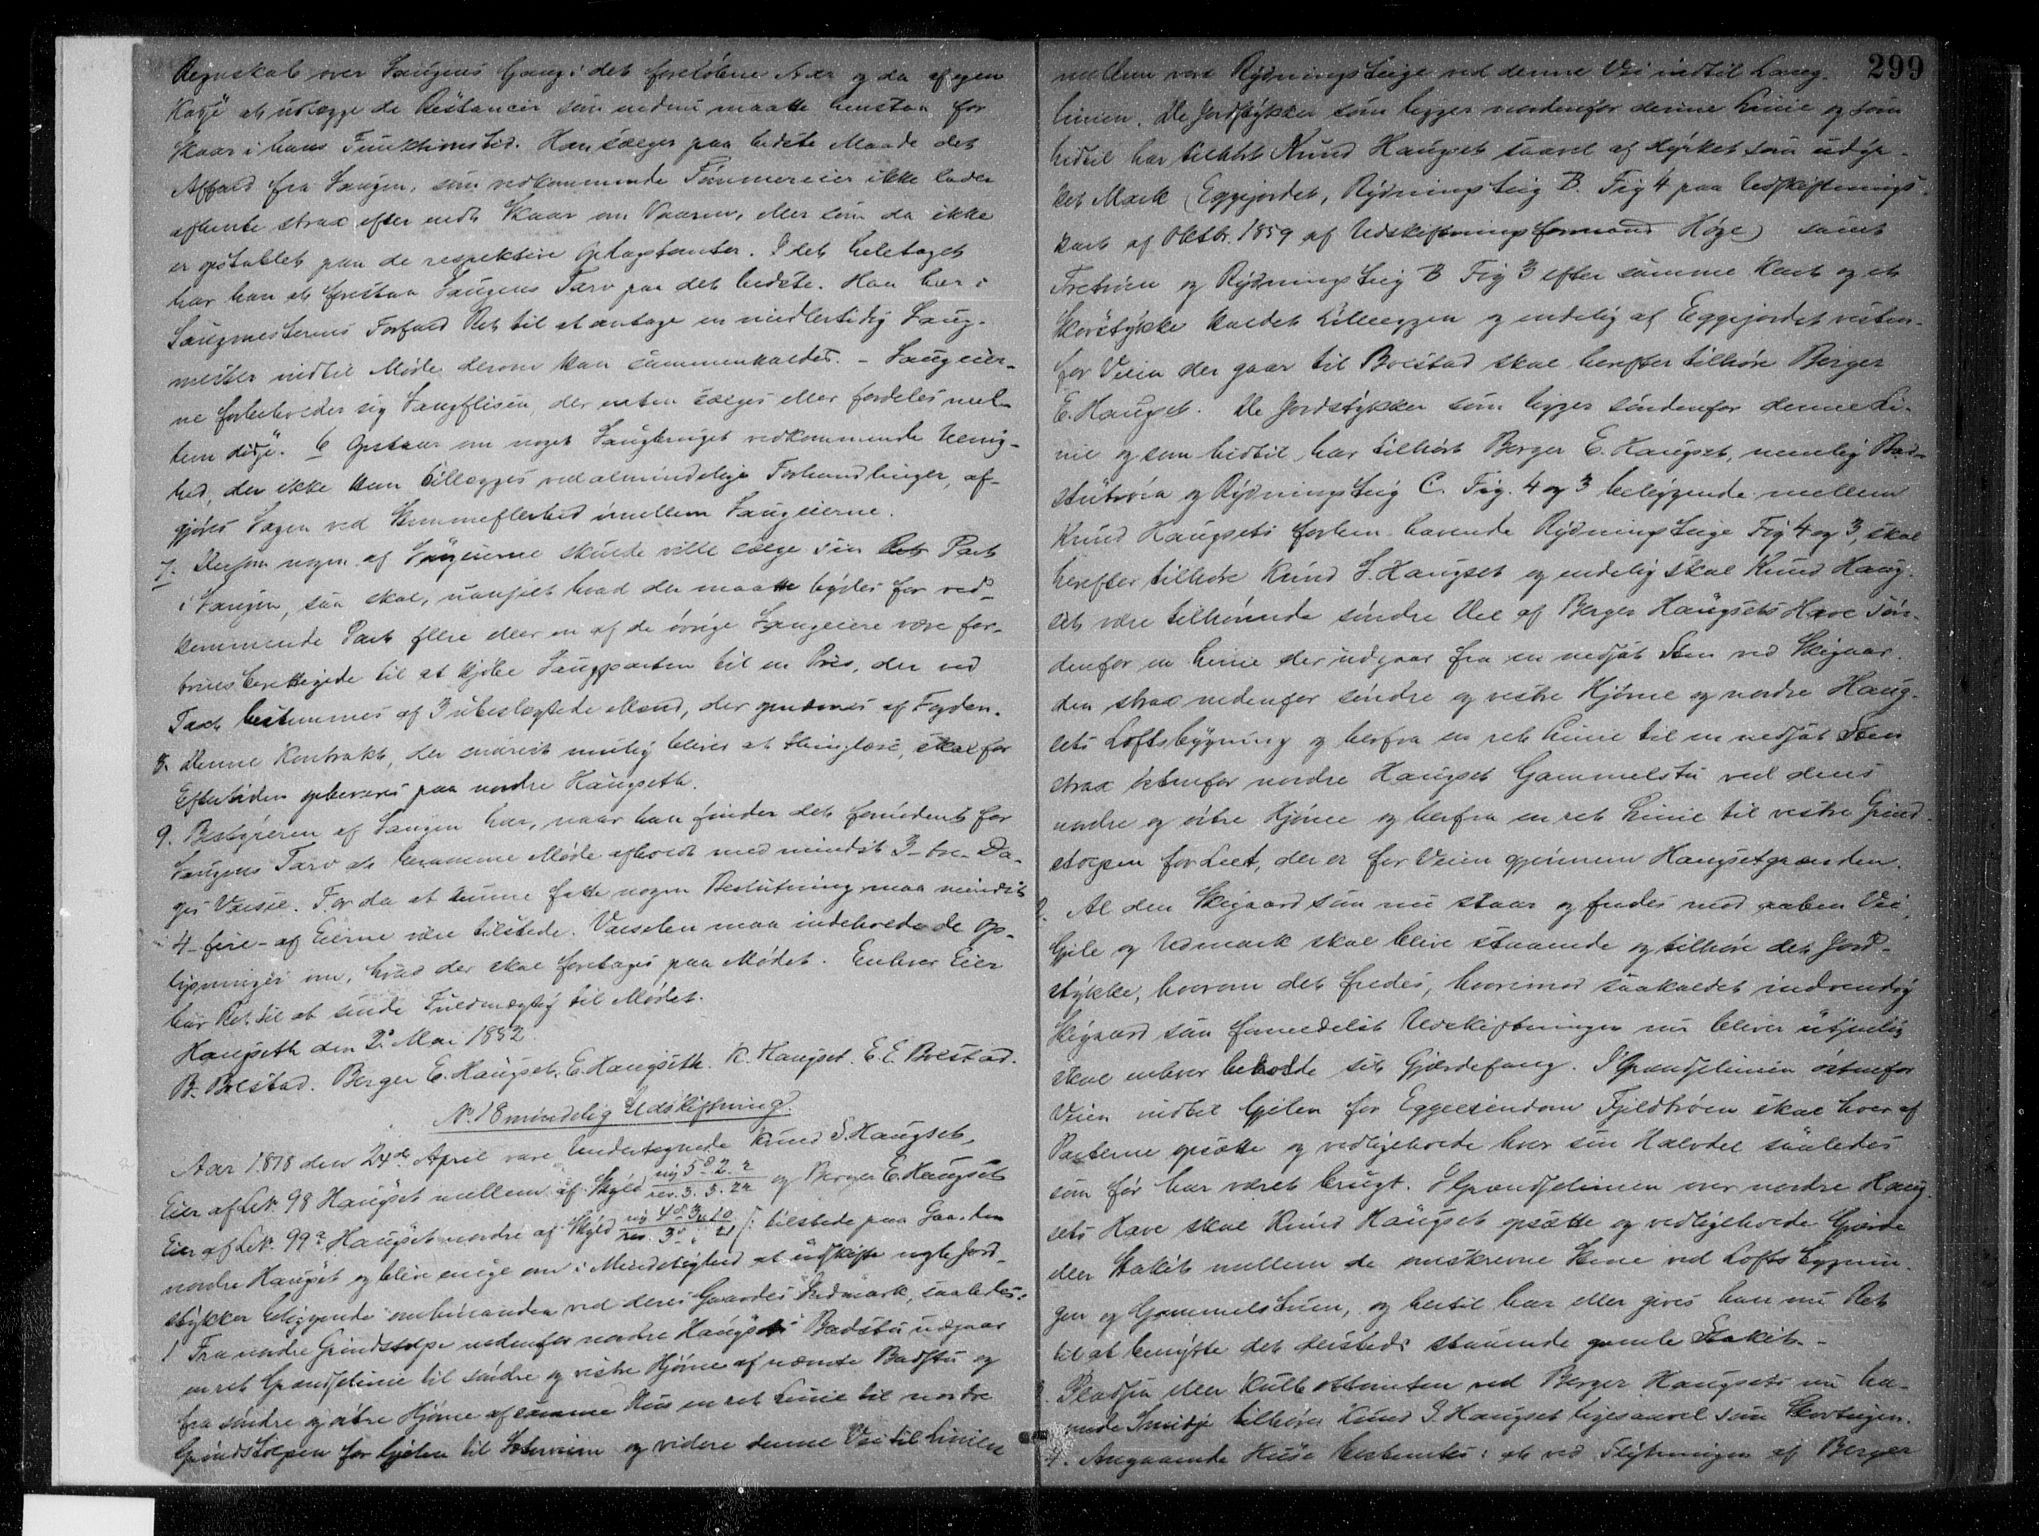 Regnskab over Saugens Gang i det forløbne Aar og da af egen
Kasse at udlægge de Restancer som endnu maatte henstaa for
Skaar i hans Funktionstid. Han sælger paa bedste Maade det
Affald fra Saugen, som vedkommende Tømmereier ikke lader
afhente strax efter endt Skaar om Vaaren, eller som da ikke
er opstablet paa de respektive Oplagstomter. I det heletaget
har han at forestaa Saugens Tarv paa det bedste. Han har i
Saugmesterens Forfald Ret til at antage en midlertidig Saug-
mester indtil Møde derom kan sammenkaldes. - Saugeier-
ne forbeholder sig Saugflisen, der enten sælges eller fordeles mel-
lem disse. 6 Opstaar om noget Saugbruget vedkommende Uenig-
hed, der ikke kan bilægges ved almindelige Forhandlinger, af-
gjøres Sagen ved Stemmeflerhed imellem Saugeierne.
7. Dersom nogen af Saugeierne skulde ville sælge sin Part
i Saugen, saa skal, uanseet hvad der maatte bydes for ved-
kommende Part flere eller en af de øvrige Saugeiere være for-
trinsberettigede til at kjøbe Saugparten til en Pris, der ved
Taxt bestemmes af 3 ubeslægtede Mænd, der opnævnes af Fogden.
8. Denne Kontrakt, der snarest mulig bliver at thinglæse, skal for
Eftertiden opbevares paa nordre Haugseth.
9. Bestyreren af Saugen har, naar han finder det fornødent for
Saugens Tarv at beramme Møde afholdt med mindst 3 - tre - Da-
ges Varsel. For da at kunne fatte nogen Beslutning maa mindst
4 - fire - af Eierne være tilstede. Varselen maa indeholde de Op-
lysninger om, hvad der skal foretages paa Mødet. Enhver Eier
har Ret til at sende Fuldmægtig til Mødet.
Haugseth den 2. Mai 1882.
B. Bolstad. Berger E. Haugset. E. Haugseth. K. Haugset. E. E. Bolstad.
No. 18 mindelig Udskiftning.
Aar 1878 den 24de April vare Undertegnede Knud S. Haugset,
Eier af L.N. 98 Haugset mellem af Skyld og Berger E. Haugset
Eier af L.N. 99a Haugset nordre af Skyld tilstede paa Gaarden
nordre Haugset og bleve enige om i Mindelighed at udskifte nogle Jord-
stykker beliggende om hinanden ved deres Gaardes Hjemark, saaledes:
1 Fra nordre Grindstolpe nedenfor nordre Haugsets Badstu udgaar
en ret Grændselinie til søndre og vestre Hjørne af nævnte Badstu og
fra søndre og østre Hjørne af samme Hus en ret Linie til nordre
Grindstolpen for Gjelen til Sæterveien og videre denne Vei til Linien
299
mellem vore Rydningsteige ved denne Vei indtil Laag-
linien. De Jordstykker som ligger nordenfor denne Linie og som
hidtil har tilhørt Knud Haugset saavel af dyrket som udyr-
ket Mark (Eggejordet, Rydningsteig B. Fig 4 paa Udskiftnings-
kart af Oktb. 1859 af Udskiftningsformand Høye) samt
Tretrøen og Rydningsteig B Fig 3 efter samme Kart og et
Skovstykke kaldet Lilleeggen og endelig af Eggejordet vesten-
for Veien der gaar til Bolstad skal herefter tilhøre Berger
E. Haugset. De Jordstykker som ligger søndenfor denne Li-
nie og som hidtil har tilhørt Berger E. Haugset, nemlig Bad-
stutrøen og Rydningsteig C. Fig. 4 og 3 beliggende mellem
Knud Haugsets forhen havende Rydningsteige Fig 4 og 3, skal
herefter tilhøre Knud S. Haugset og endelig skal Knud Haug-
set være tilhørende søndre Del af Berger Haugsets Have søn-
denfor en Linie der udgaar fra en nedsat Sten ved Skigaar-
den strax nedenfor søndre og vestre Hjørne og nordre Haug-
sets Loftsbygning og herfra en ret Linie til en nedsat Sten
strax østenfor nordre Haugset Gammelstu ved dens
nordre og østre Hjørne og herfra en ret Linie til vestre Grind-
stolpen for Leet, der er for Veien gjennem Haugsetgrænden.
2. Al den Skigaard som nu staar og fredes mod aaben Vei,
Gjele og Udmark skal blive staaende og tilhøre det Jord-
stykke, hvorom det fredes, hvorimod saakaldet indvendig
Skigaard som formedelst Udskiftningen nu bliver utjenlig
skal enhver beholde sit Gjærdefang. I Grændselinien østenfor
Veien indtil Gjelen for Eggeeiendom Fjeldtrøen skal hver af
Parterne opsætte og vedligeholde hver sin Halvdel saaledes
som før har været brugt. I Grændselinien over nordre Haug-
sets Have skal Knud Haugset opsætte og vedligeholde Gjærde
eller Stakit mellem de omskrevne Stene ved Loftsbygnin-
gen og Gammelstuen, og hertil har eller gives han nu Ret
til at benytte det dersteds staaende gamle Stakit. -
3. Pladsen eller Kulbottomten ved Berger Haugsets nu ha-
vende Smidje tilhører Knud S. Haugset ligesaavel som Skovteigen.
4. Angaaende Huse bestemtes: at ved Flytningen af Berger